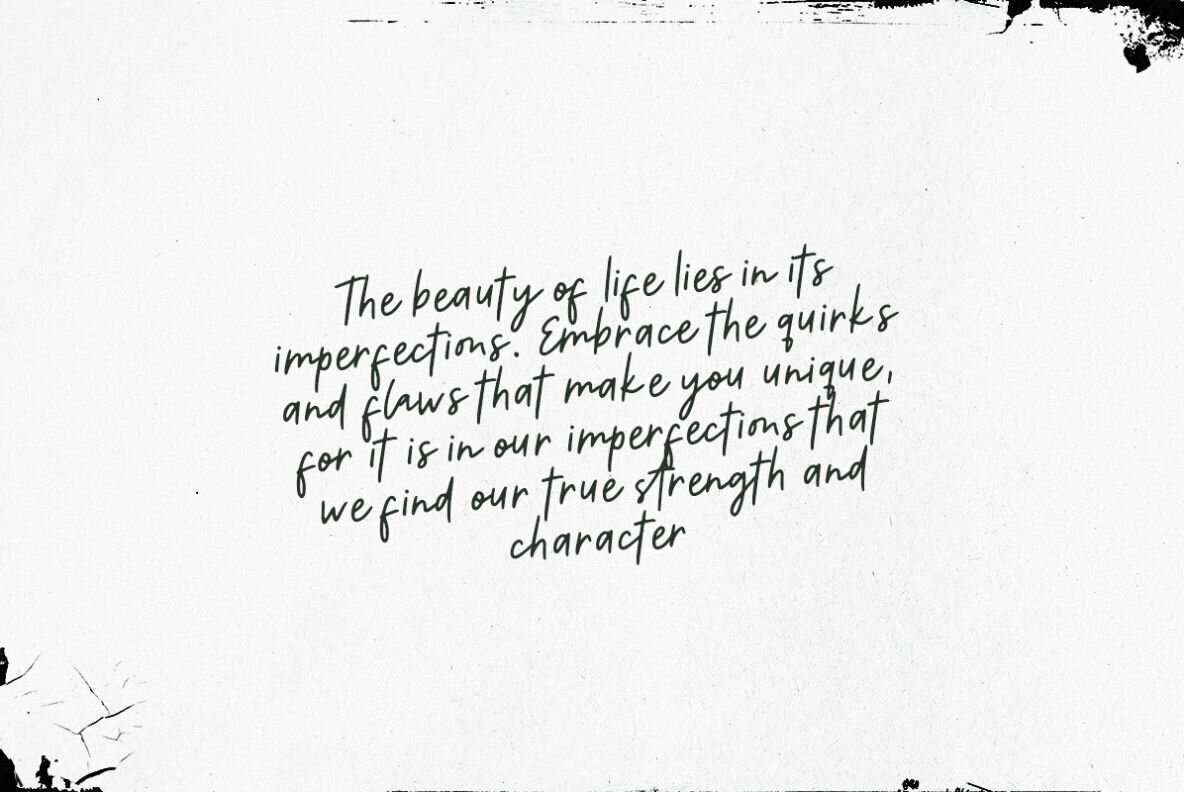 The beauty of life lies in its
imperfections. Embrace the quirks
and flaws that make you unique,
for it is in our imperfections that
we find our true strength and
character